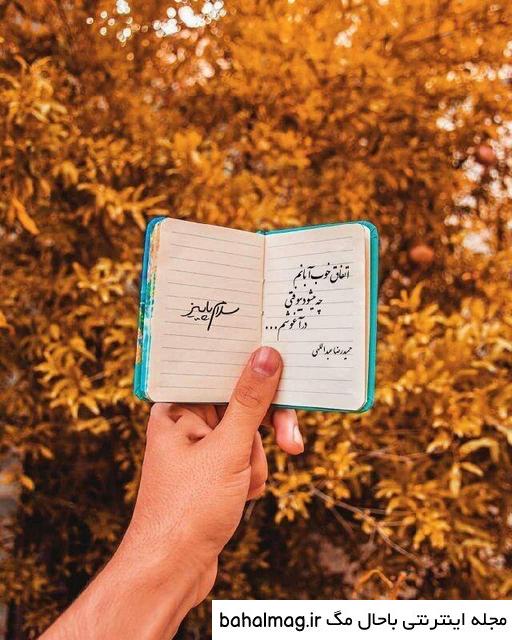 اتفاق خوب آبانم
چه میشود بیفتی
در آغوشم...
حمیدرضا عبداللهی
سلام پاییز
مجله اینترنتی باحال مگ bahalmag.ir